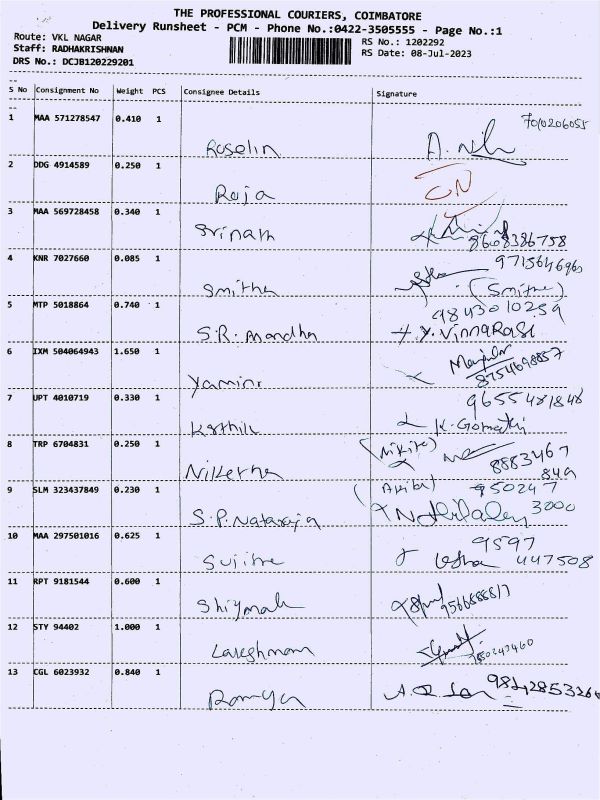 THE PROFESSIONAL COURIERS, COIMBATORE
Delivery Runsheet - PCM - Phone No.:0422-3505555 - Page No.:1
Route: VKL NAGAR RS No.: 1202292
Staff: RADHAKRISHNAN RS Date: 08-Jul-2023
DRS No.: DCJB120229201
S No Consignment No Weight PCS Consignee Details Signature
1 MAA 571278547 0.410 1 7010206055
Roselin
2 DDG 4914589 0.250 1
Roja CN
3 MAA 569728458 0.340 1
Srinath 9608386758
4 KNR 7027660 0.085 1
Smitha (Smitha)
5 MTP 5018864 0.740 1 9843010259
S.R. Nandha
6 IXM 504064943 1.650 1
Yamini 8754698857
7 UPT 4010719 0.330 1 9655481848
Karthik K. Gomathi
8 TRP 6704831 0.250 1 8883467
Niketha 849
9 SLM 323437849 0.230 1 950247
S.P. Nataraja 3000
10 MAA 297501016 0.625 1 9597
Sujitha Usha 447508
11 RPT 9181544 0.600 1
Shiyamala
12 STY 94402 1.000 1
Lakshmanan
13 CGL 6023932 0.840 1 9842853260
Ramya